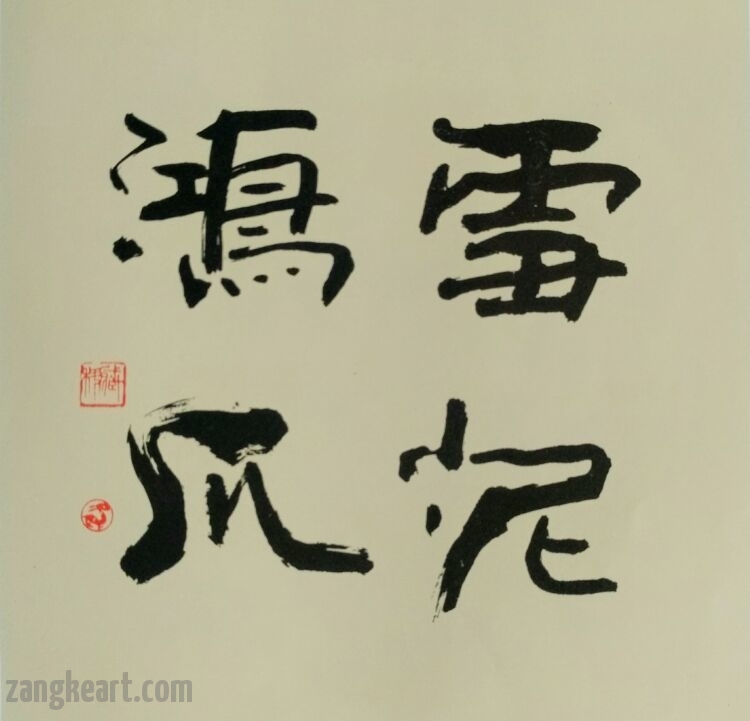 雪泥
鸿爪
zangkeart.com